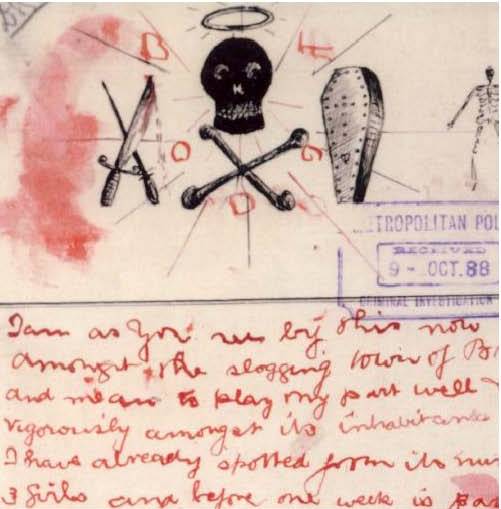 ETROPOLITAN POL
RECEIVED
9 - OCT. 88
CRIMINAL INVESTIGATION
I am as you see by this now
amongst the slogging town of
and mean to play my part well
vigorously amongst its inhabitants
I have already spotted from its num
3 Girls and before one week is pas